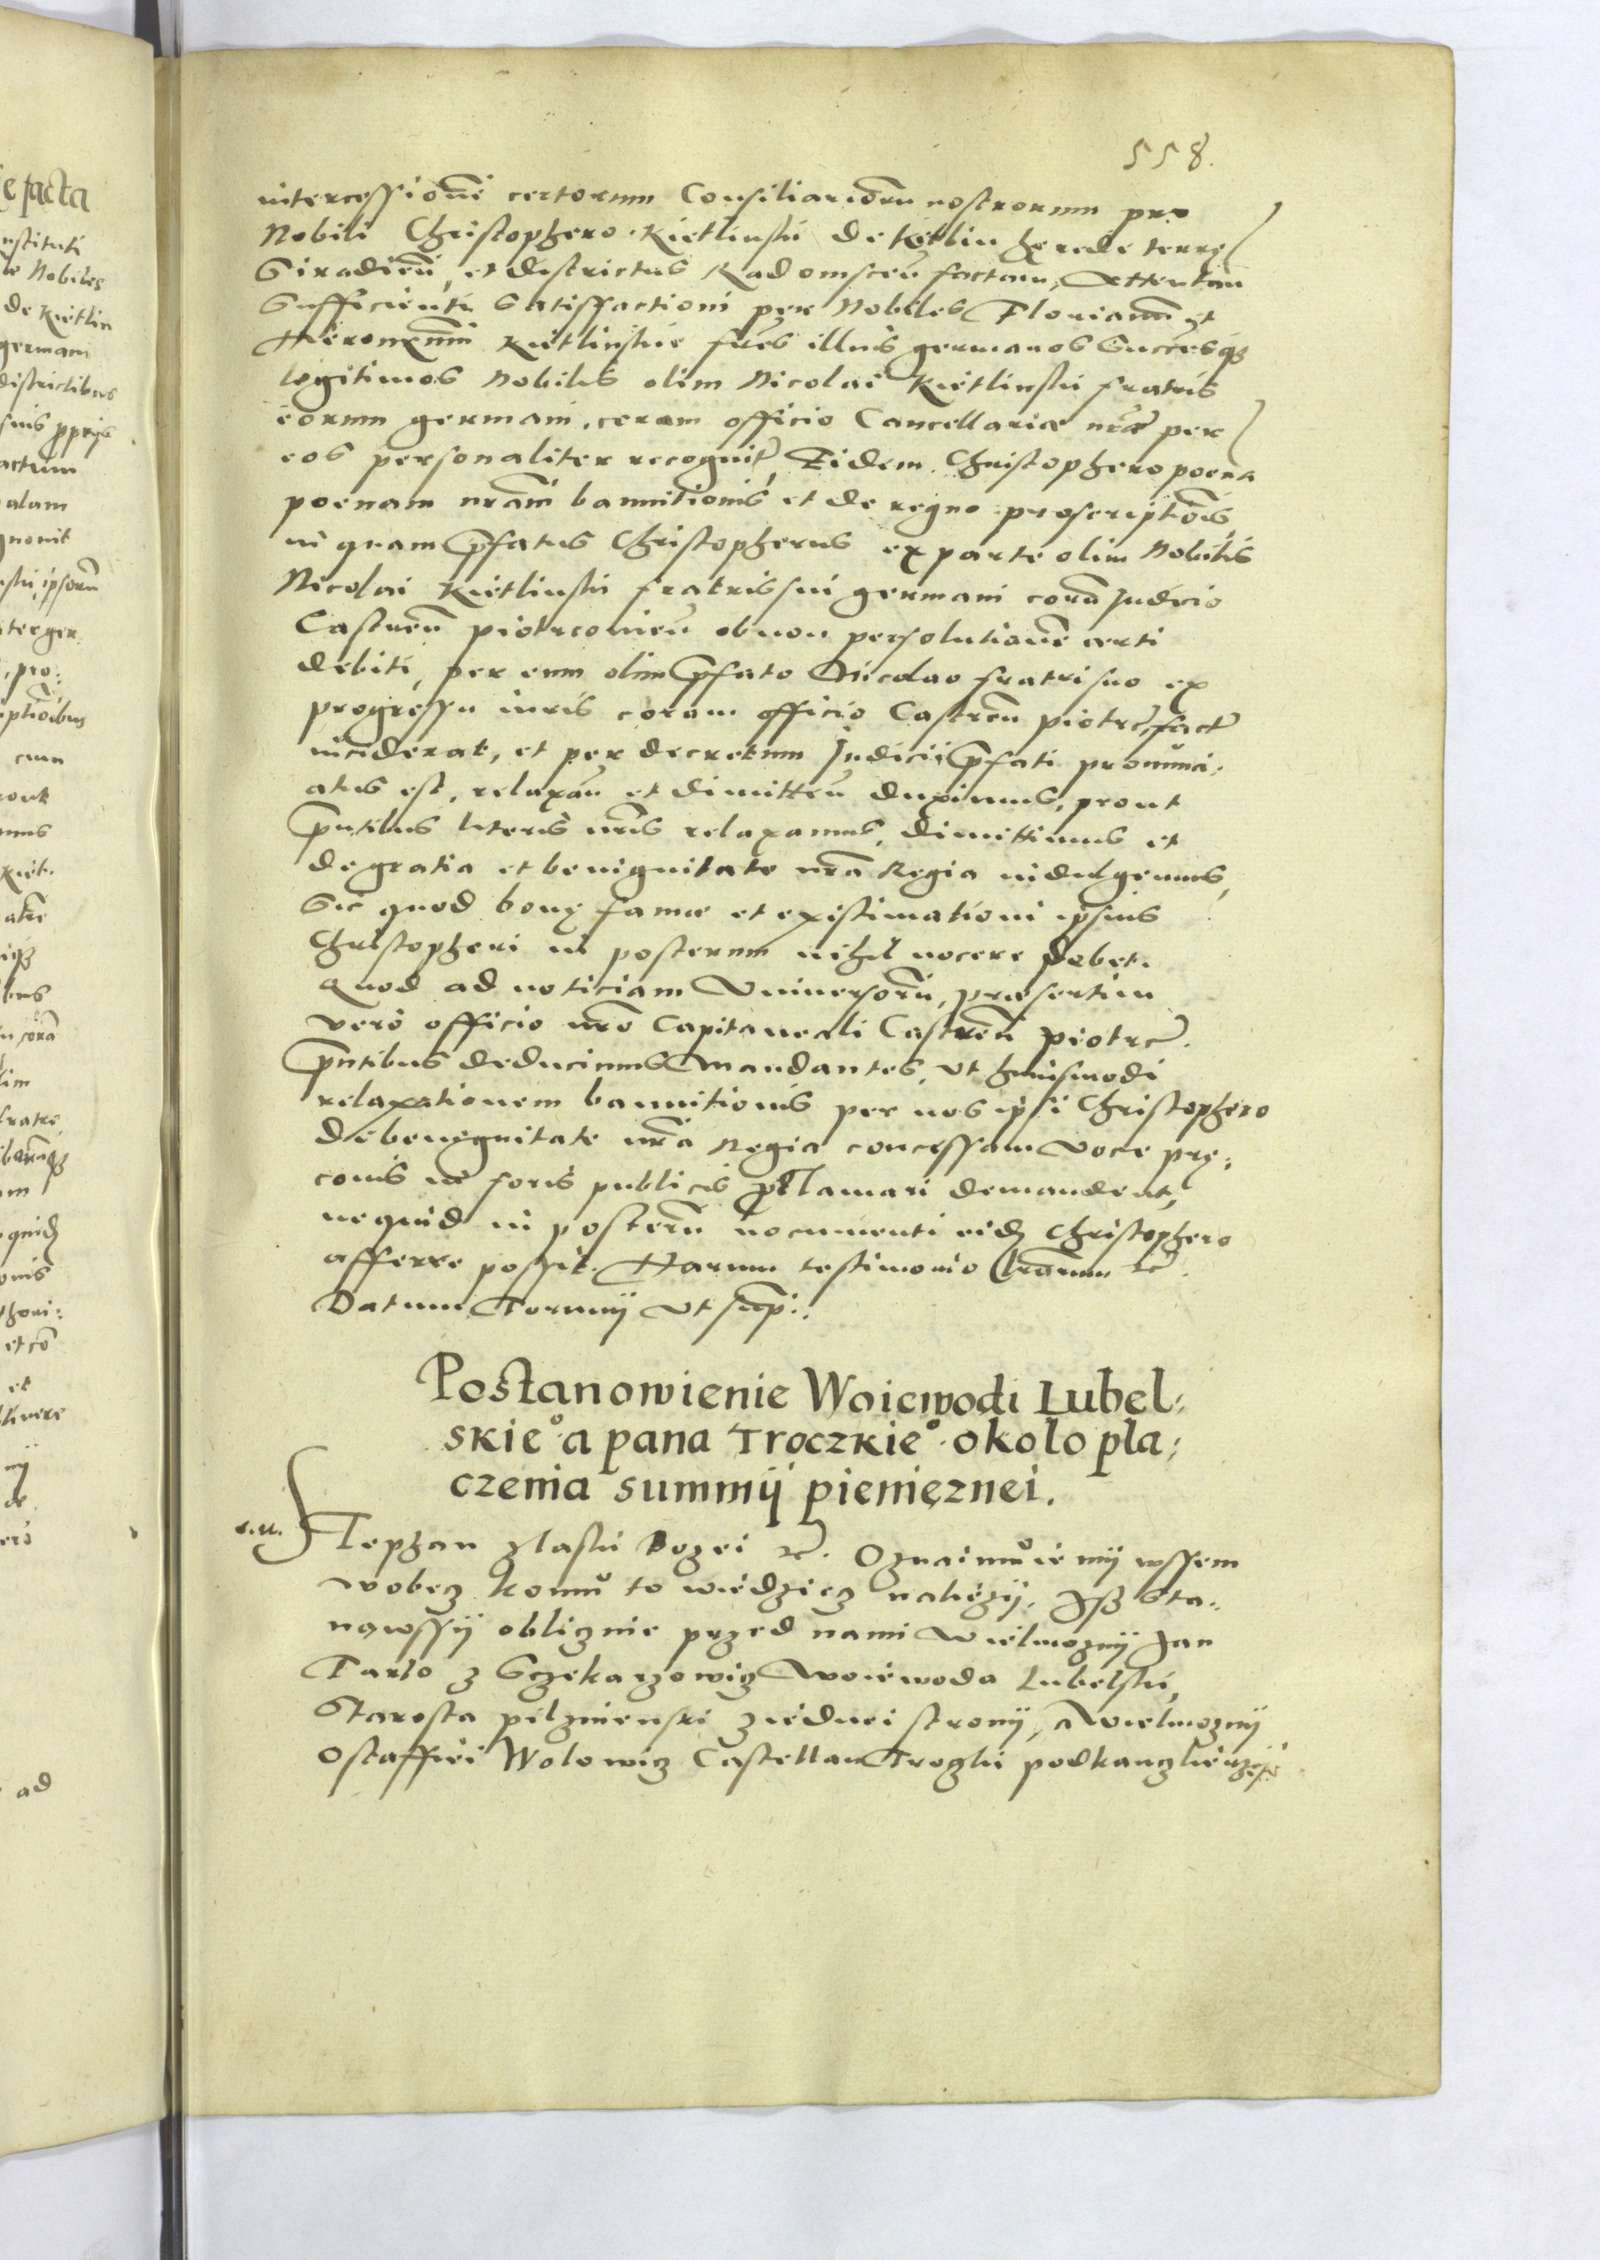 558.
intercessionē certorum Consiliariorū nostrorum pro
Nobili Christophero Kietlinski de Kietlin hęrede terrę
Siradieñ, et districtus Radomsceñ factam, Attentaq̃
sufficienti satisfactioni per Nobiles Florianū et
Hieronymū Kietlinskie fr̃es illius germanos Succes. q̢
legitimos Nobilis olim Nicolai Kietlinski fratris
eorum germani, coram officio Cancellariæ nr̃æ per
eos personaliter recognit̃, Eidem Christophero poena
poenam nr̃am bannitionis, et de regno proscriptiōis,
in quam p̃fatus Christopherus ex parte olim Nobilis
Nicolai Kietlinski fratris sui germani corā Judicio
Castreñ piotrcovieñ ob non persolutionē certi
debiti, per eum olim p̃fato Nicolao fratri suo ex
progressu iuris coram officio Castreñ piotrc̃ fact̃
inciderat, et per decretum Judicii p̃fati pronunci:
atus est, relaxañ et dimitteñ duximus, prout
p̃ntibus literis nr̃is relaxamus, dimittimus et
de gratia et benignitate nr̃a Regia indulgemus,
Sic quod bonę famæ et existimationi ipsius
Christopheri in posterum nihil nocere debet.
Quod ad noticiam Universorū, præsertim
vero officio nr̃o Capitaneali Castreñ Piotrc̃.
p̃ntibus deducimus Mandantes, ut huiusmodi
relaxationem bannitionis per nos ipsi Christophero
de benignitate nr̃a Regia concessam voce prę:
conis in foris publicis p̃clamari demandent,
ne quid in posterū nocumenti eidẽ Christophero
afferre possit. Harum testimonio lr̃arum etc̃.
Datum Torunij ut sup̃.:
Postanowienie Woiewodi Lubel:
skie° a pana Troczkie° okolo pla:
czenia summÿ pienięznei.
s.u. Stephan z laski Bozei etc̃. Oznaimuie mÿ wssem
wobecz komu to wiedziecz nalieżÿ. Iß Sta:
nąwssÿ oblicznie przed nami Wielmoznÿ Jan
Tarlo z Sczekarzowicz Woiewoda Lubelski,
Starosta pilznienski z iednei stronÿ, a Wielmoznÿ
Ostaffiei Wolowicz Castellan Troczki podkanczlierzẽ